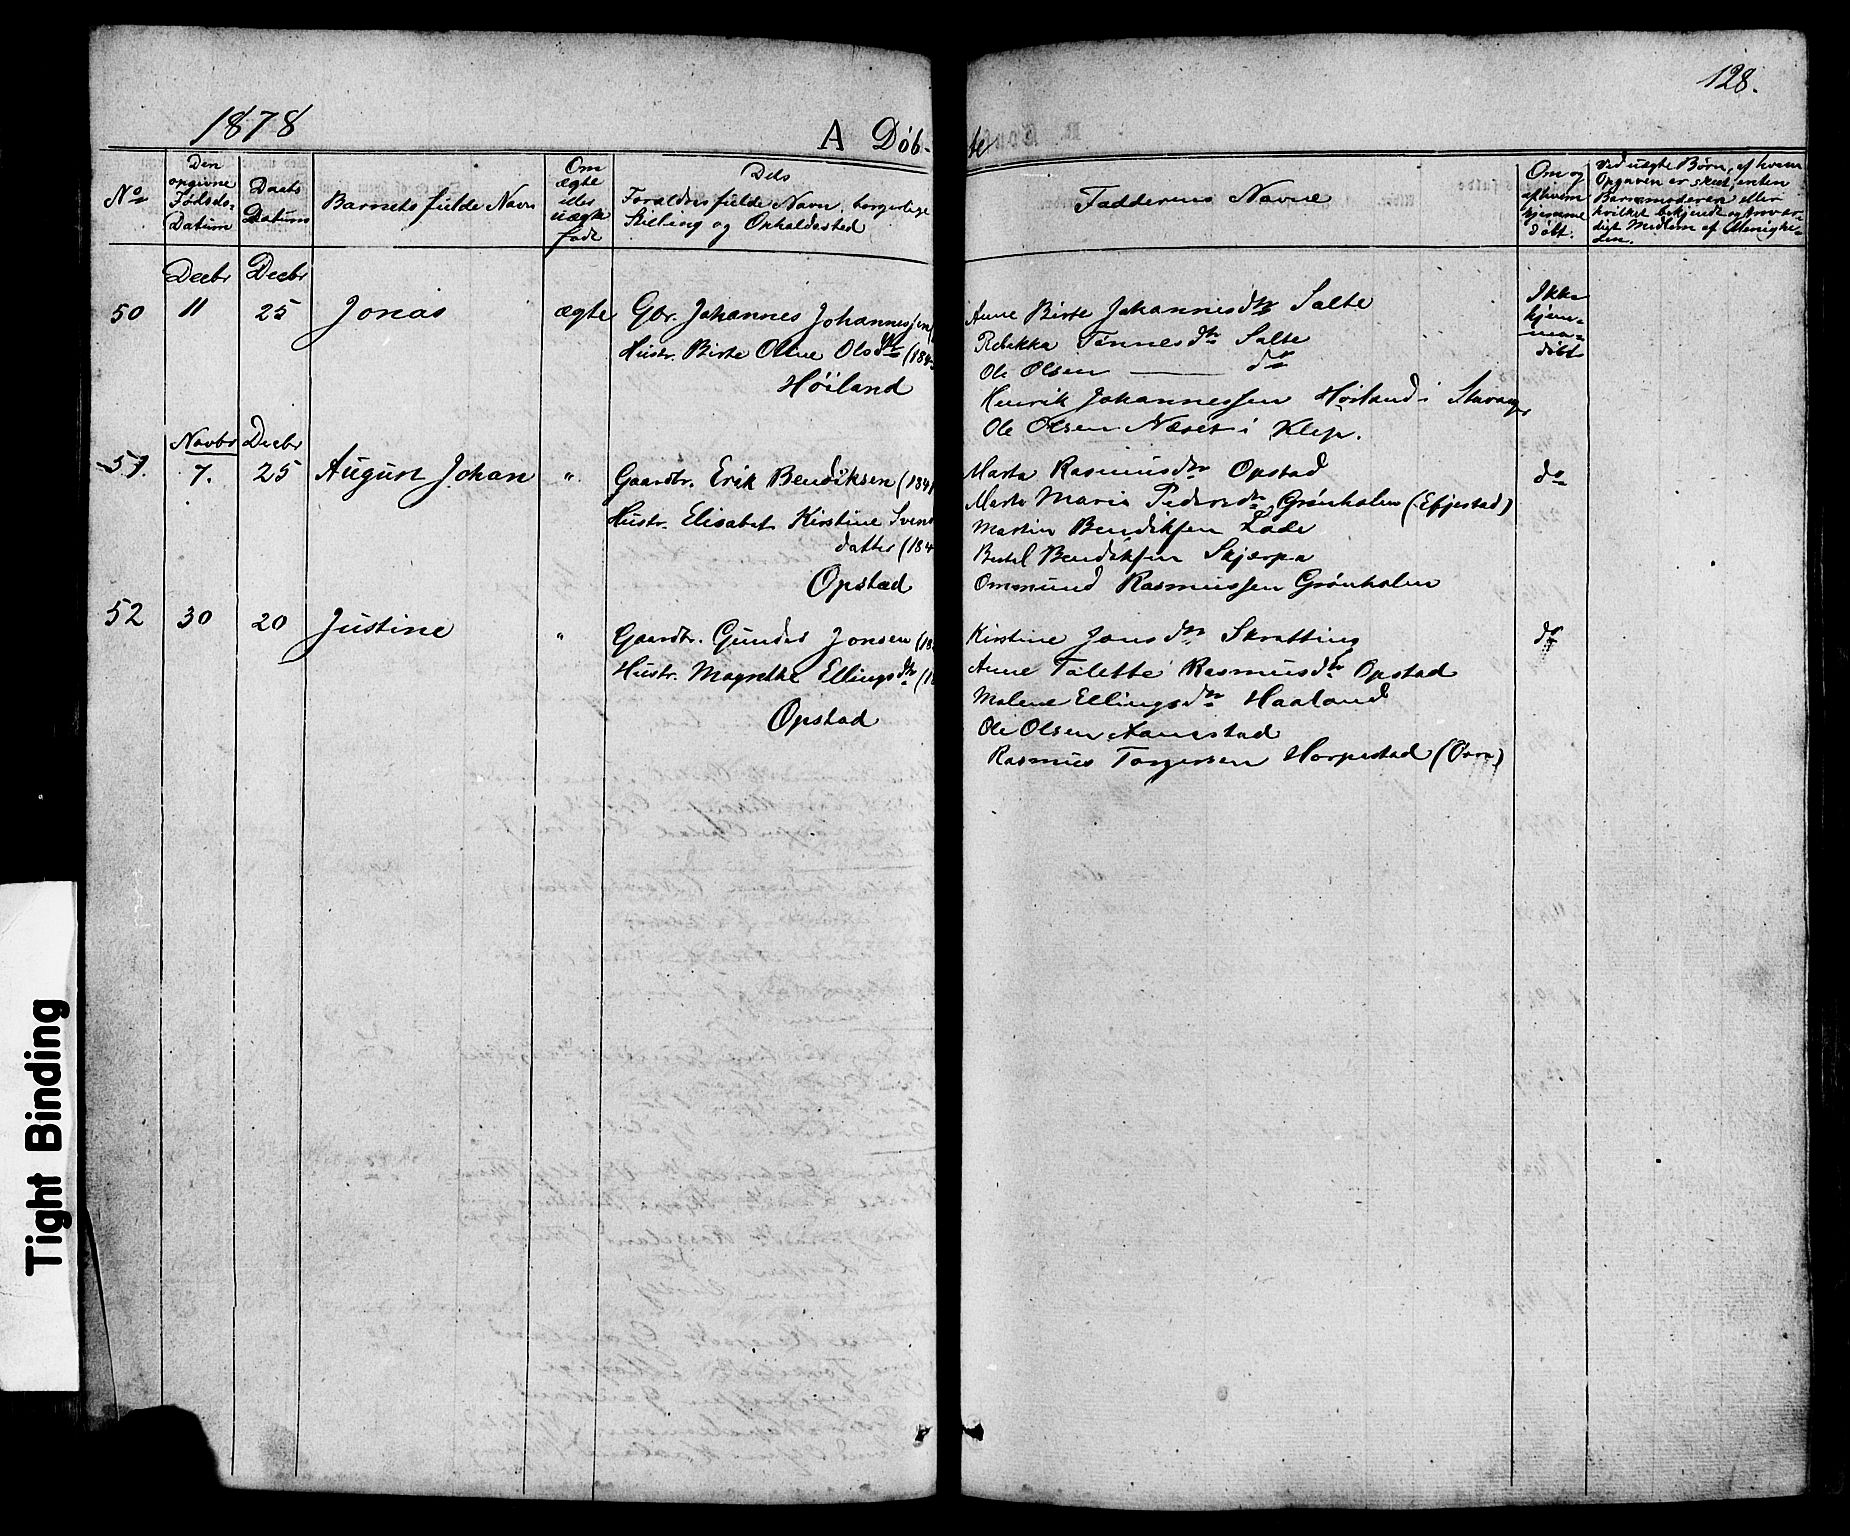 128.
1878
A Døb-
te
No
Den
opgivne
Fødsels-
Datum
Daabs
Datum
Barnets fulde Navn
Om
ægte
eller
uægte
født
Dets
Forældres fulde Navn, borgerlige
Stilling og Opholdssted
Faddernes Navne
Om og
af hvem
hjemme
døbt.
Ved uægte Børn, af hvem
Opgaven er skeet, enten
Barnemoderen eller
hvilket bekjendt og trovær-
digt Medlem af Menighe-
den.
Decbr Decbr
50 11 25 Jonas ægte Gbr. Johannes Johannessen
Hustr. Birte Oline Olsdtr (184
Høiland
Anne Birte Johannesdtr Salte
Rebekka Tønnesdtr Salte
Ole Olsen do
Henrik Johannessen Høiland i Stavanger
Ole Olsen Næset i Klep.
Ikke
hjem-
me-
døbt
Novbr Decbr
51. 7. 25 August Johan " Gaardbr. Erik Bendiksen (184
Hustr. Elisabet Kirstine Svend
datter (184
Opstad
Marta Rasmusdtr Opstad
Marta Maria Pedersdtr Grønholen (Efjestad)
Martin Bendiksen Lode
Bertel Bendiksen Skjærpa
Ommund Rasmussen Grønholen
do
52 30 20 Justine " Gaardbr. Gunder Jonsen (18
Hustr. Magrethe Ellingsdtr (1
Opstad
Kirstine Jonsdtr Skratting
Anne Tolette Rasmusdtr Opstad
Malene Ellingsdtr Haaland
Ole Olsen Aanestad
Rasmus Torgersen Horpestad (Orre)
do
Tight Binding